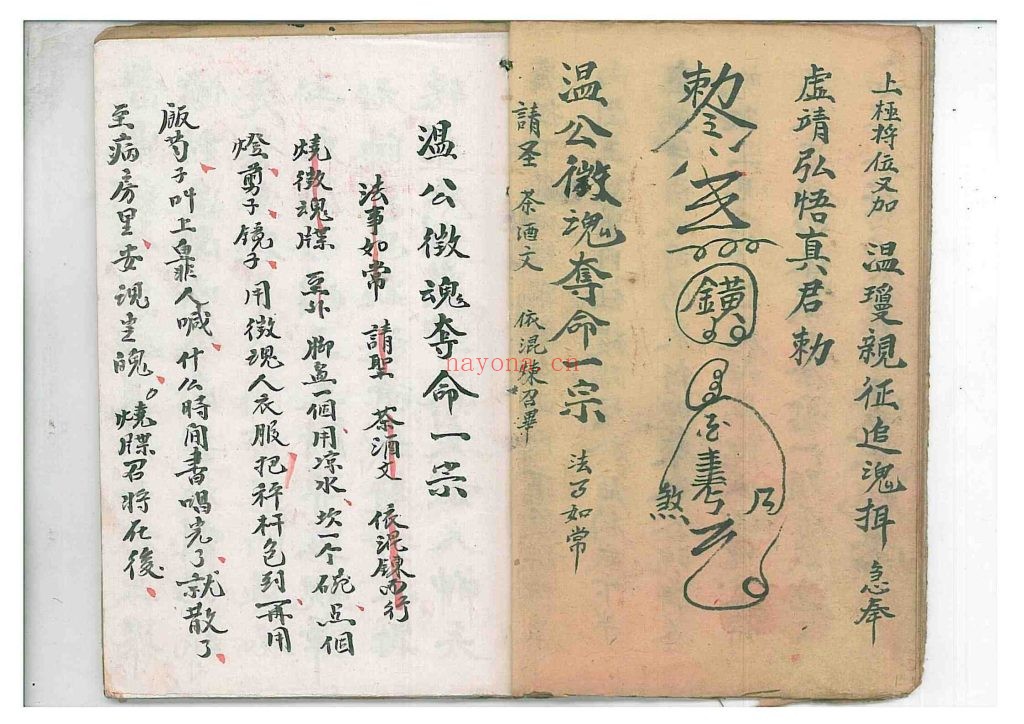 上極将位又加 溫瓊親征追魂 急奉
虛靖弘悟真君勅
勅令
鐄
煞
温公徵魂奪命一宗 法了如常
請圣 茶酒文 依混煉召畢
溫公徵魂夺命一宗
法事如常 請聖 茶酒文 依混鍊而行
燒徵魂牒 至外 脚盆一個用凉水、坎一个碗点個
燈剪子、镜子、用徵魂人衣服把秤杆包到、再用
飯芶子叫上辠人喊、什么時间書唱完了就散了、
至病房里安魂坐魄。燒牒召将在後
nayona.cn